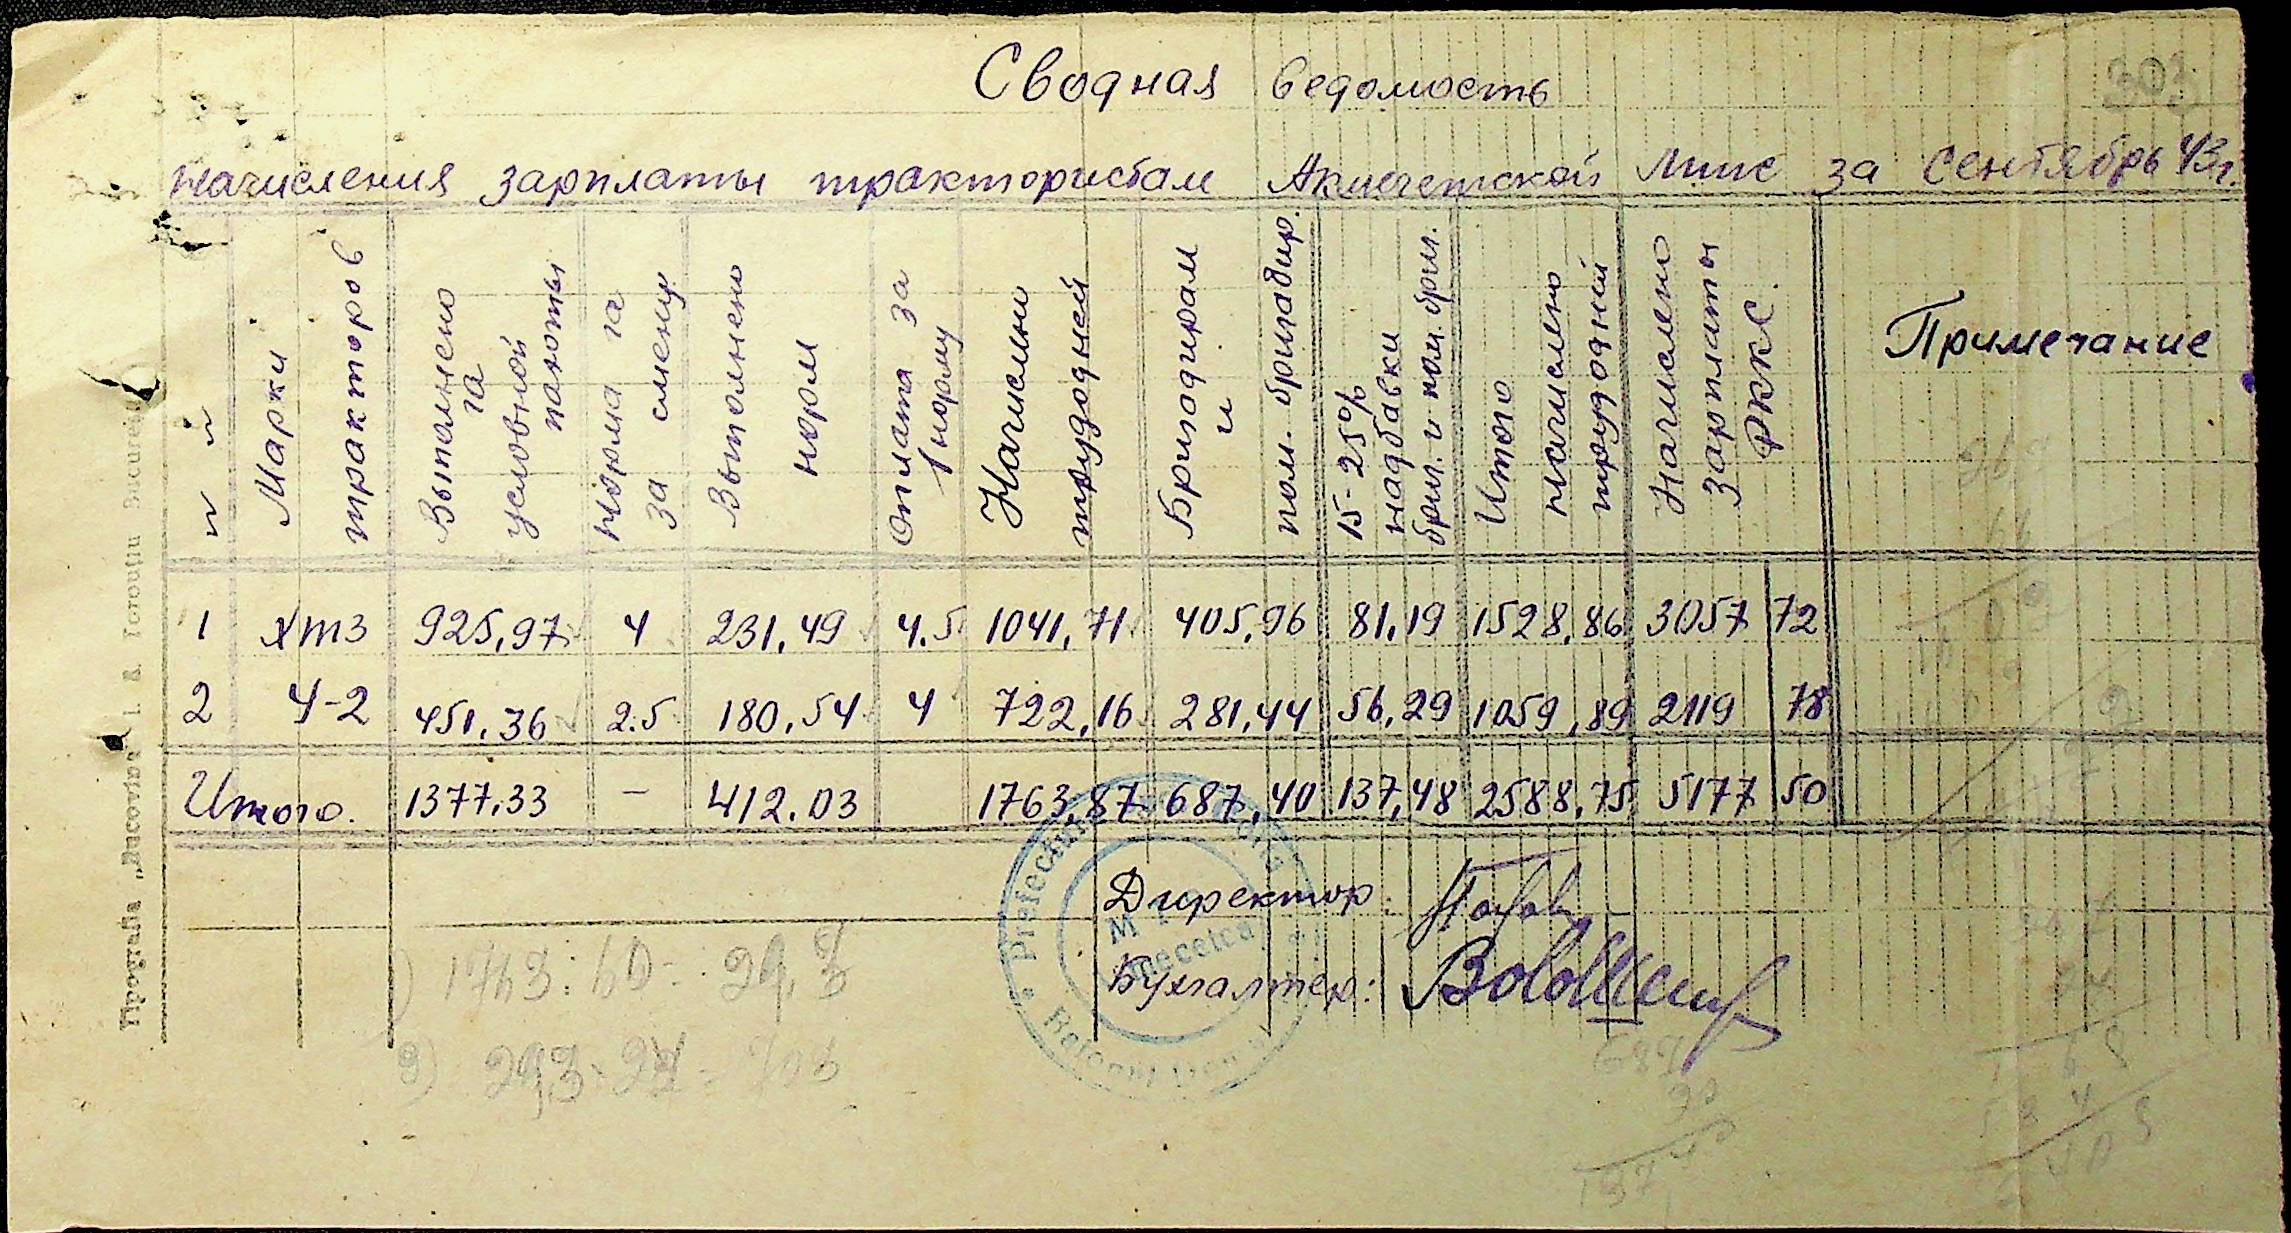 303
Сводная ведомость
начисления зарплаты трактористам Акмечетской МТС за Сентябрь 43г.
№ №
Марки тракторов
Выполнено га условной пахоты
Норма га за смену
Выполнено норм
Оплата за 1 норму
Начислено трудодней
Бригадирам и пом. бригадир.
15-25% надбавки бриг. и пом. бриг.
Итого начислено трудодней
Начислено зарплаты РККС.
Примечание
1 ХТЗ 925,97 4 231,49 4.5 1041,71 405,96 81,19 1528,86 3057 72
2 У-2 451,36 2.5 180,54 4 722,16 281,44 56,29 1059,89 2119 78
Итого. 1377,33 — 412.03 1763,87 687,40 137,48 2588,75 5177 50
Директор
Бухгалтер: